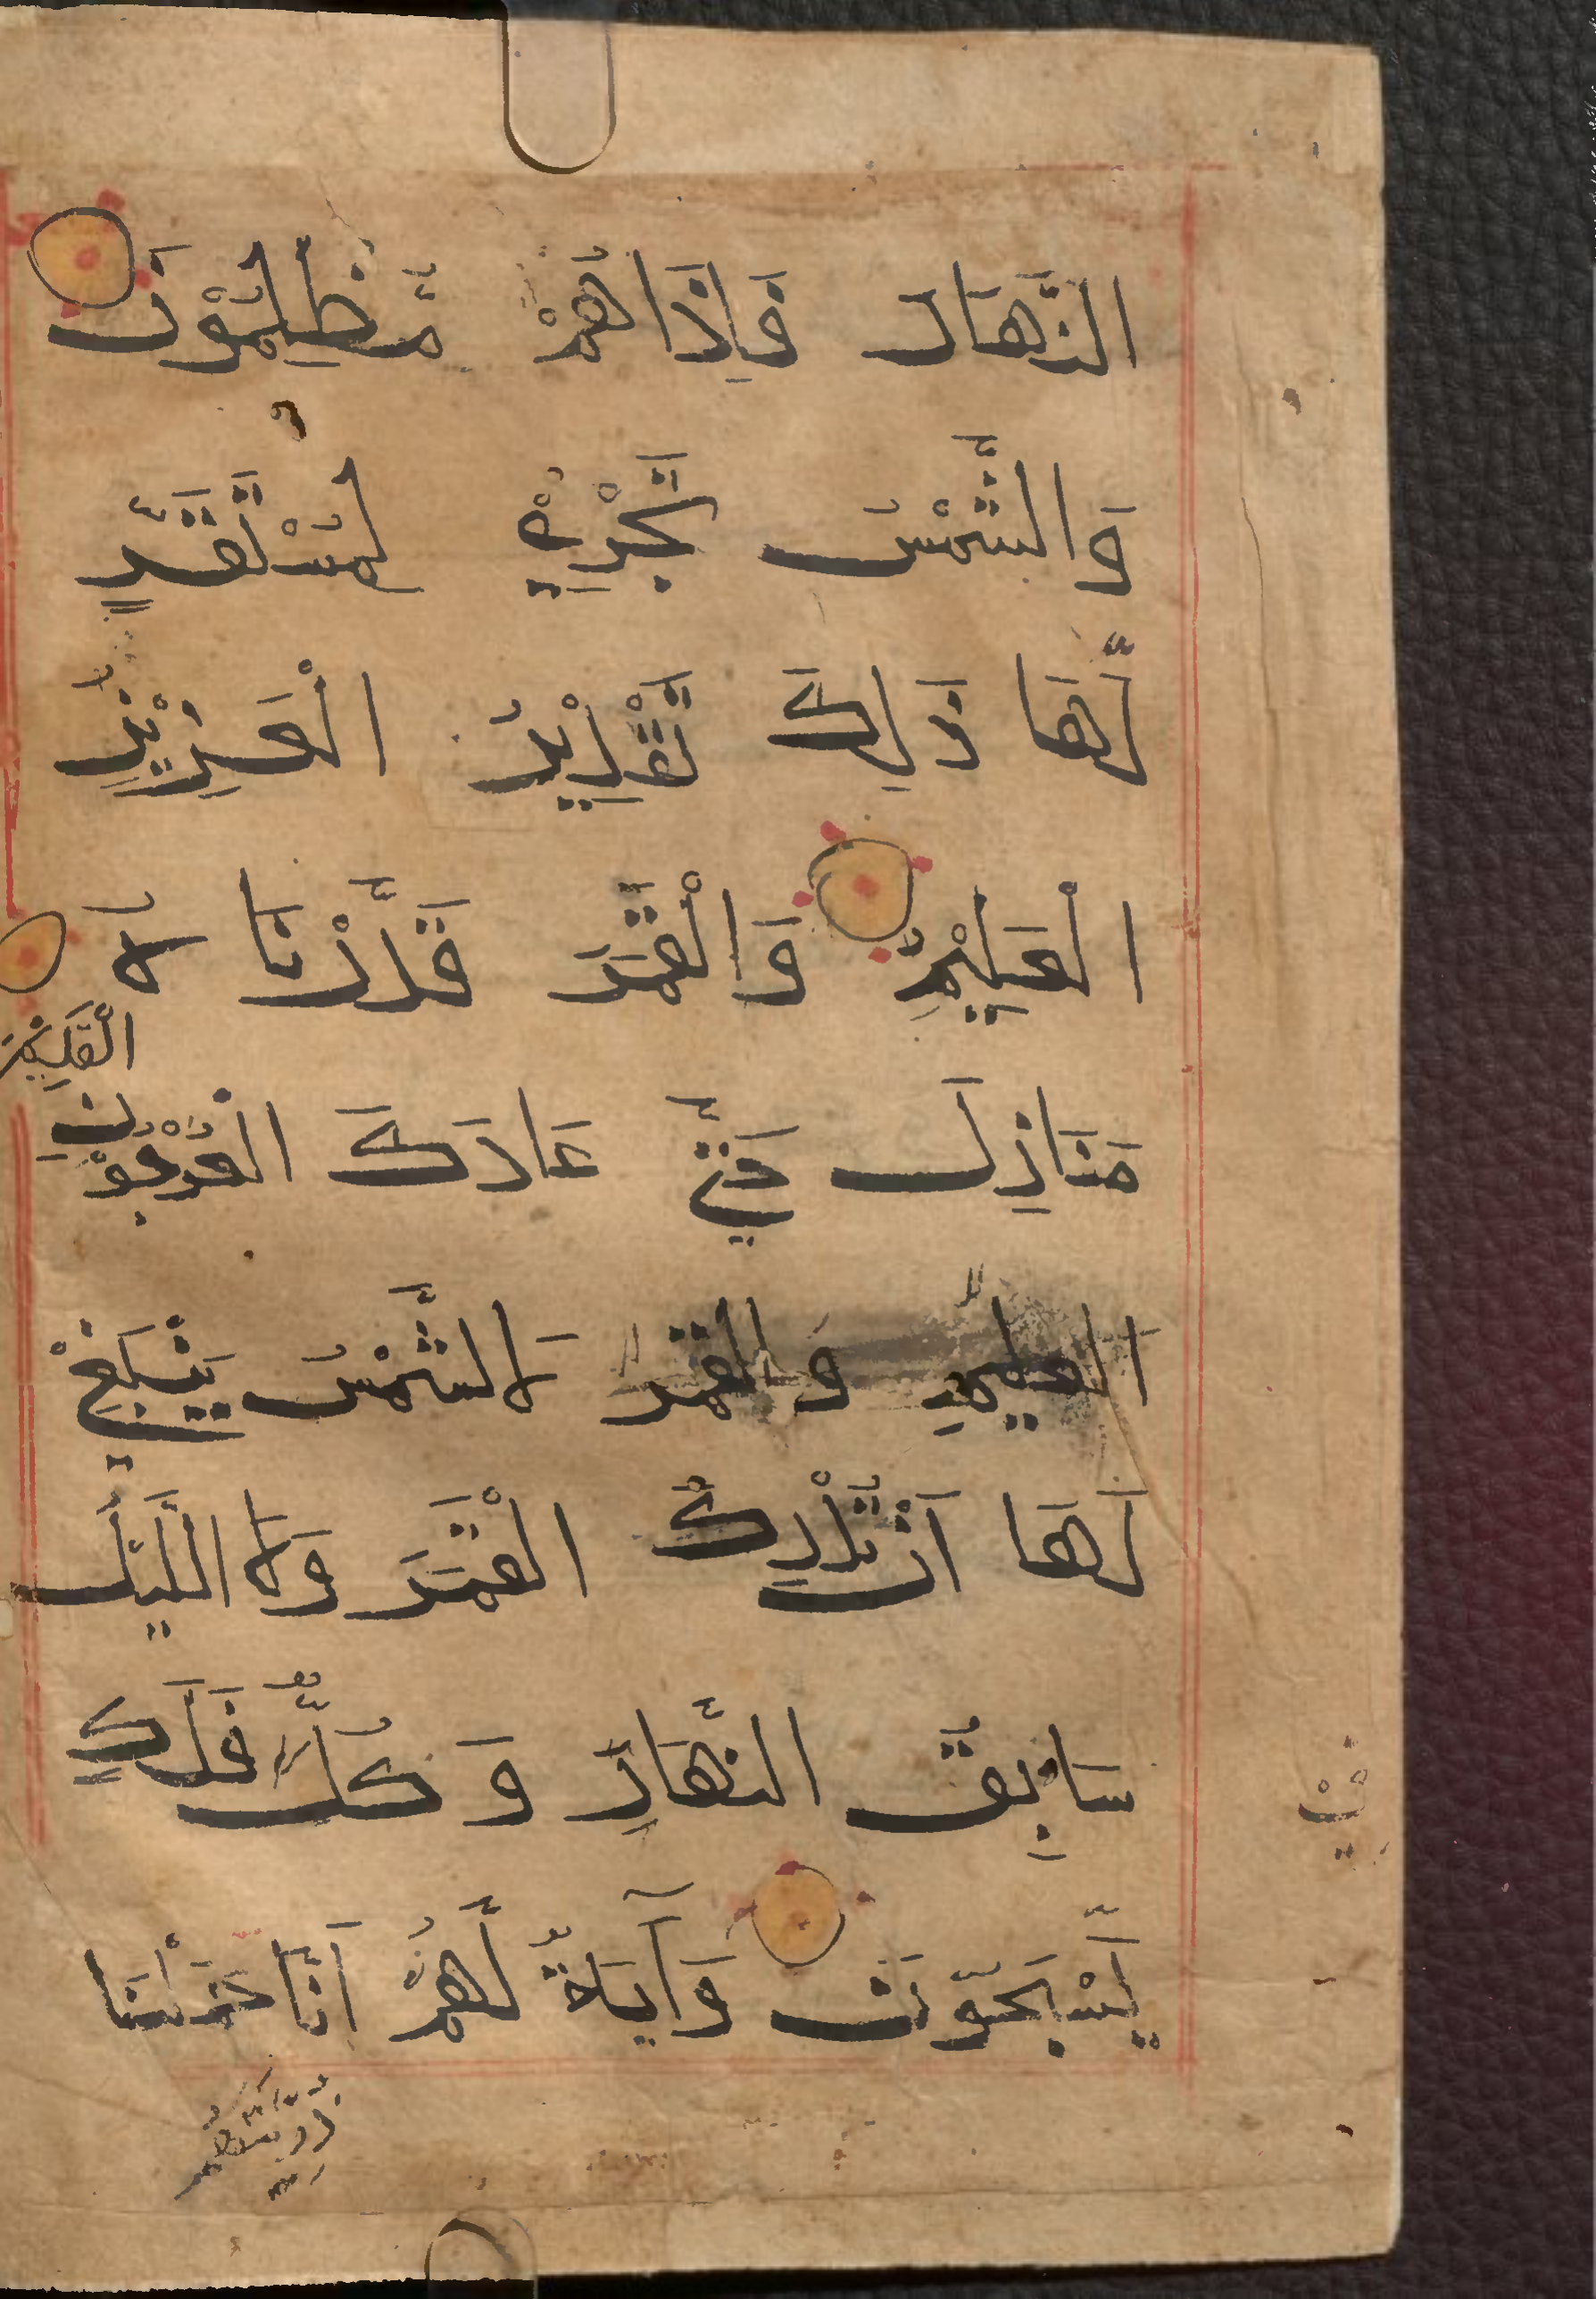 النَّهَارَ فَإِذَا هُمْ مُّظْلِمُوْنَ
وَالشَّمْسُ تَجْرِيْ لِمُسْتَقَرٍّ
لَّهَا ذَلِكَ تَقْدِيْرُ الْعَزِيْزِ
الْعَلِيْمِ وَالْقَمَرَ قَدَّرْنَا لَا
الْقَدِيْمِ
مَنَازِلَ حَتَّى عَادَكَ الْعُرْجُوْنِ
العليمِ وَالقمر لَا الشَّمْسُ يَنْبَغِيْ
لَهَا اَنْ تُدْرِكَ الْقَمَرَ وَلَا الَّيْلُ
سَابِقُ النَّهَارِ وَكُلٌّ فَلَكٍ
فِيْ
يَّسْبَحُوْنَ وَآيَةٌ لَّهُمْ اَنَّا حَمَلْنَا
ذُرِّيَّتَهُمْ